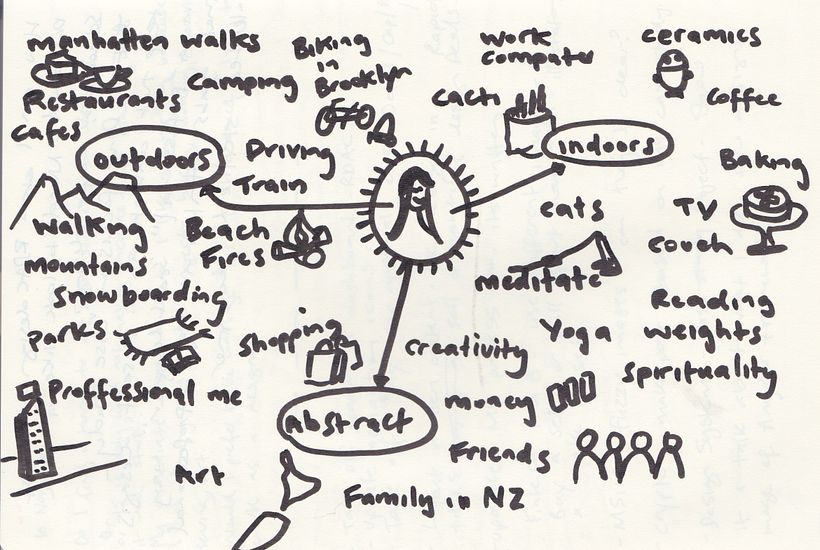 manhatten walks
Restaurants
cafes
camping
Biking
in
Brooklyn
work
computer
cacti
ceramics
coffee
outdoors
Driving
Train
indoors
Baking
walking
mountains
Beach
Fires
cats
TV
couch
meditate
snowboarding
parks
shopping
Reading
Yoga weights
spirituality
creativity
Proffessional me
abstract
money
Friends
Art
Family in NZ